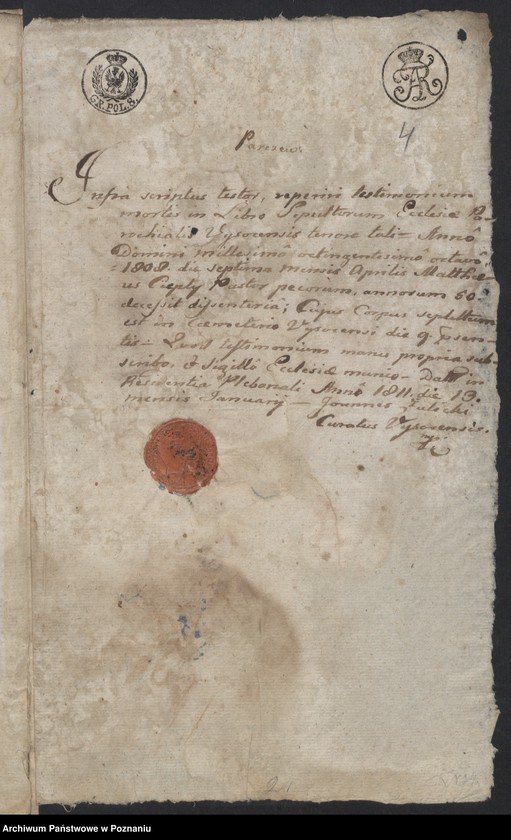 GR. POL. 8.
4
Infra scriptus testor, reperiri testimonium
mortis in Libro Sepultorum Ecclesiæ Pa-
rochialis Vysocensis tenore tali - Annô
Domini millesimô octingentesimo octavo
1808. die septima mensis Aprilis Matthæ-
us Cieply Pastor pecorum, annorum 60
decessit dissenteria; Cujus Corpus sepultum
est in Cemeterio Vysocensi die 9. præsen-
tis - Quod testimonium manu propria sub-
scribo, & Sigillô Ecclesiæ munio - Dat in
Residentia Plebanali Annô 1811. die 13.
mensis Januarij - Joannes
Curatus Vysocensis.
Archiwum Państwowe w Poznaniu